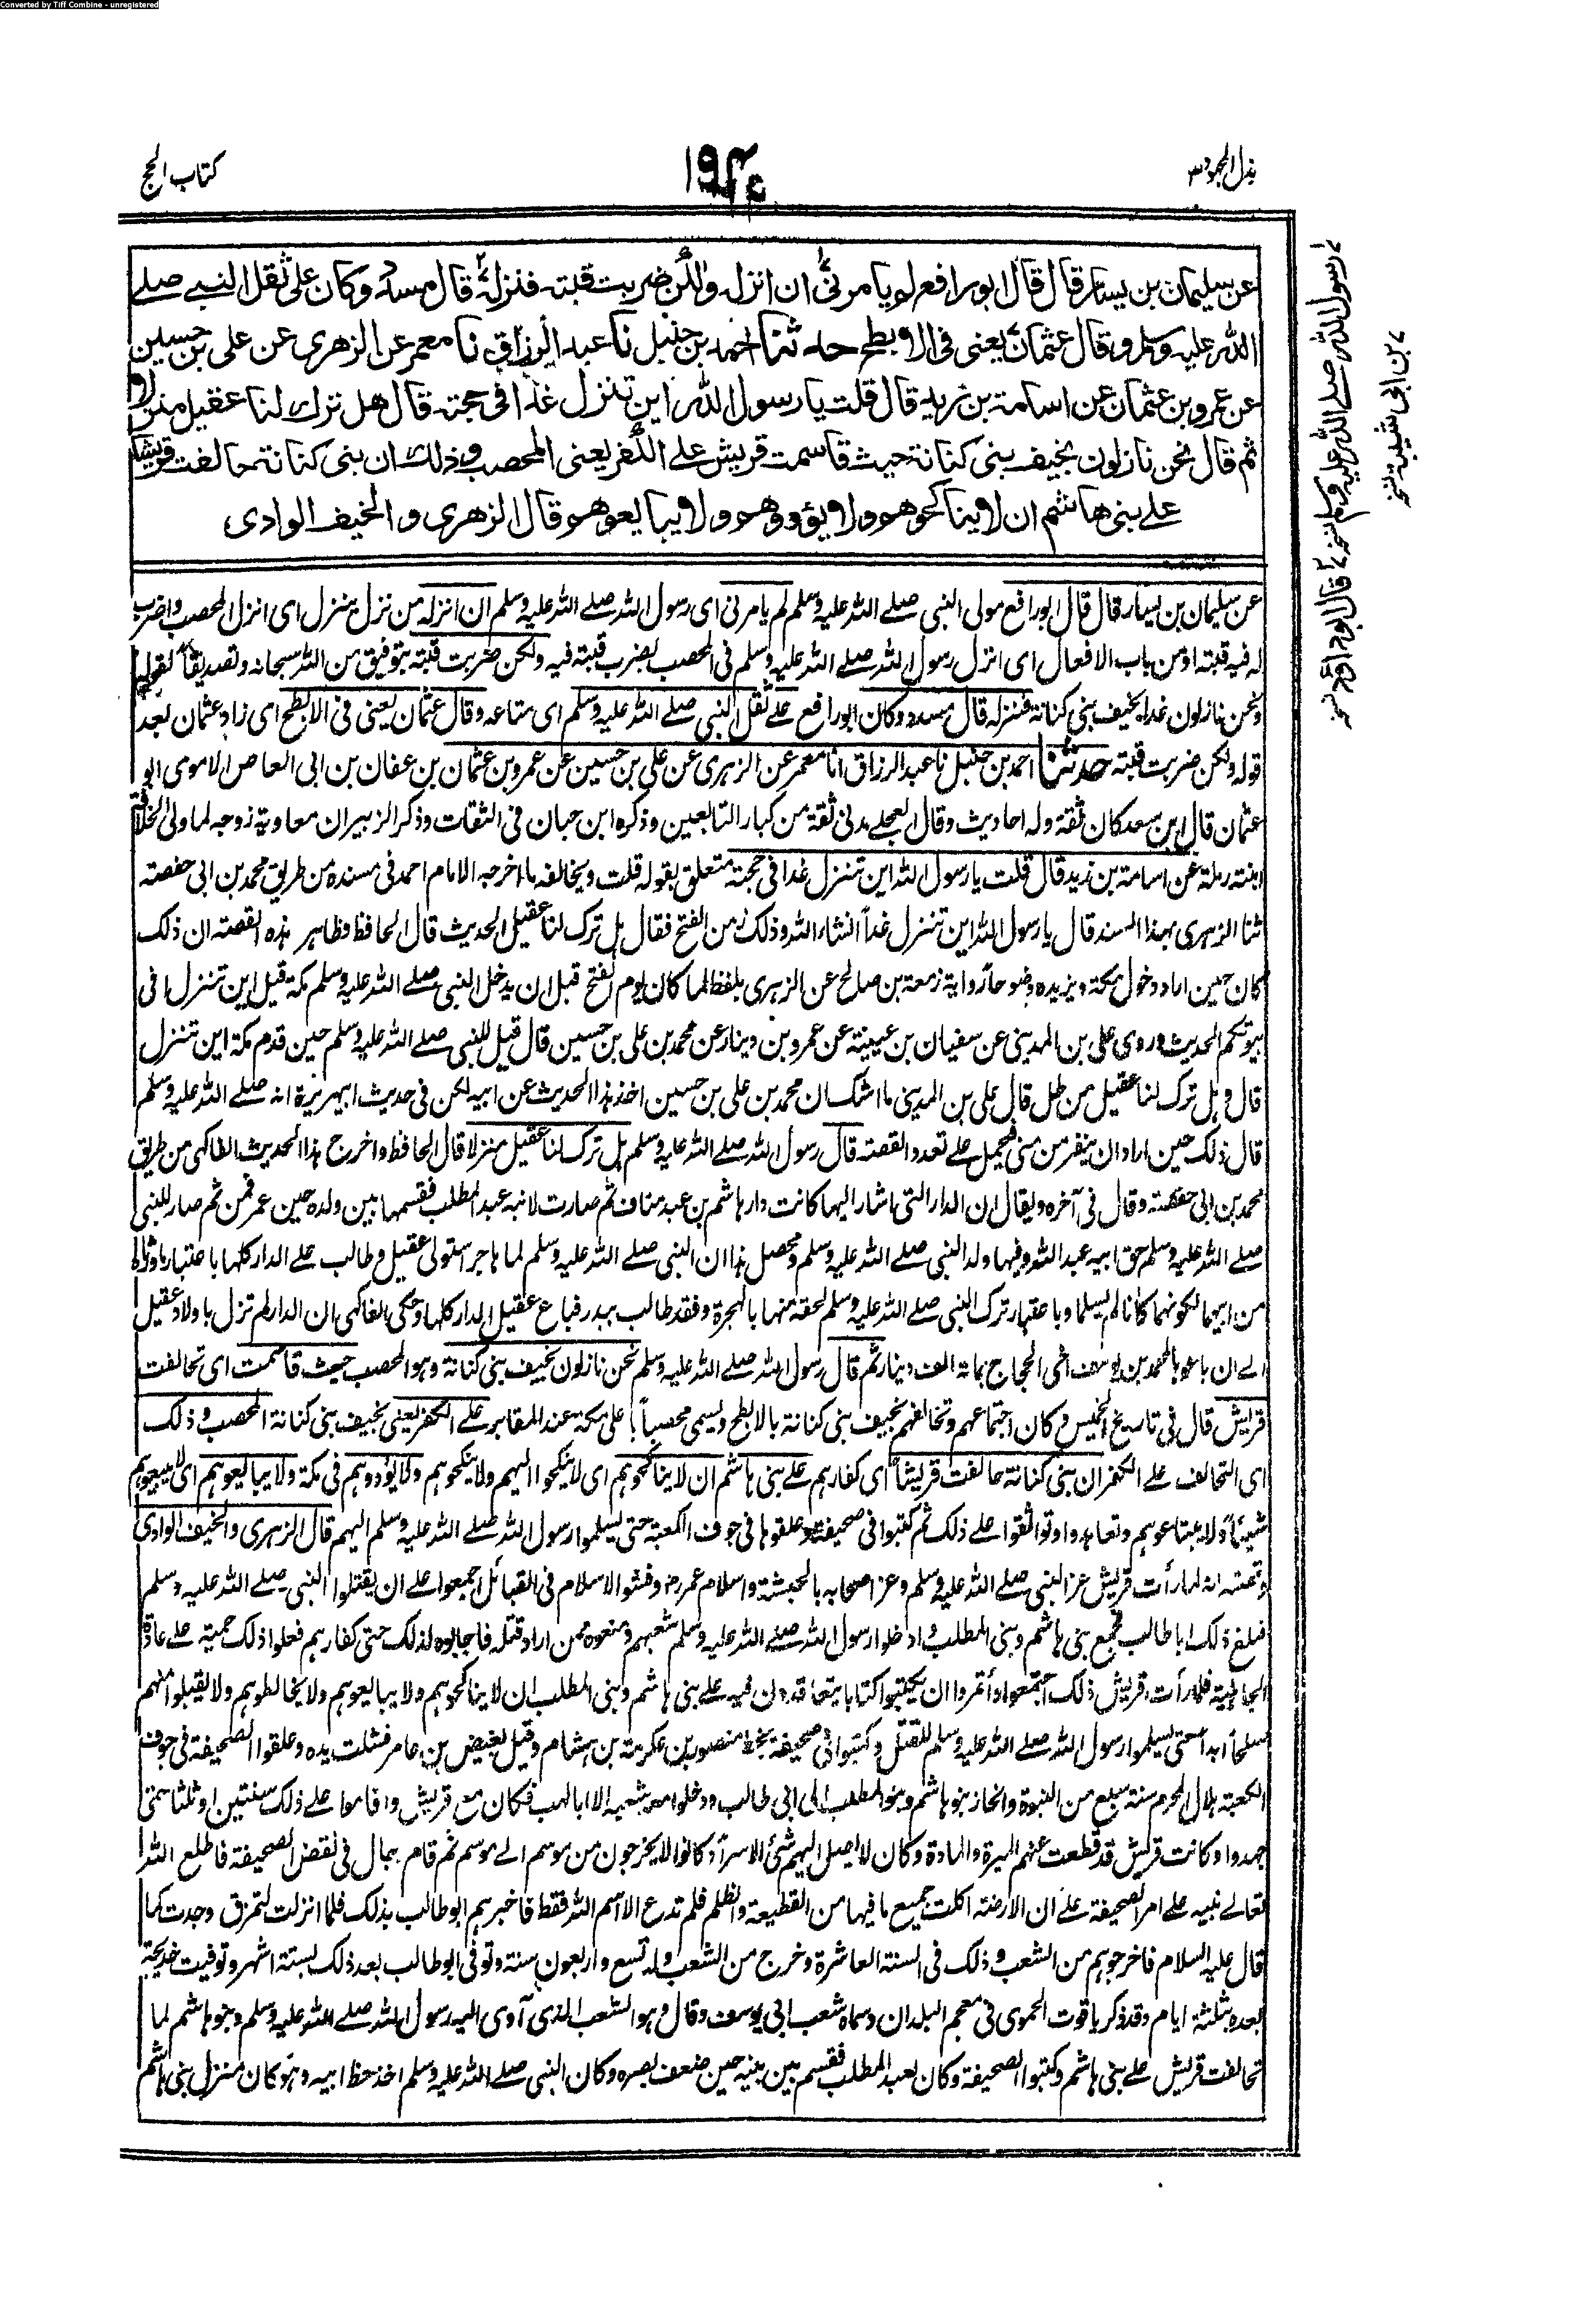 Converted by Tiff Combine - unregistered
بذل المجهود ٣
١٩٤
كتاب الحج
عن سليمان بن يسار قال قال ابو رافع لم يامرنى ان انزله ولكن ضربت قبته فنزله قال مسدد وكان على ثقل النبي صلے
الله عليه وسلم وقال عثمان يعنى فى الابطح حدثنا احمد بن حنبل نا عبد الرزاق نا معمر عن الزهرى عن على بن حسين
عن عمرو بن عثمان عن اسامة بن زيد قال قلت يا رسول الله اين تنزل غدا فى حجته قال هل ترك لنا عقيل منزلا
ثم قال نحن نازلون بخيف بنى كنانة حيث قاسمت قريش على الكفر يعنى المحصب وذلك ان بنى كنانة حالفت قريشا
على بنى هاشم ان لا يناكحوهم ولا يؤووهم ولا يبايعوهم قال الزهرى والخيف الوادى
عن سليمان بن يسار قال قال ابو رافع مولى النبي صلے الله عليه وسلم لم يامرنى اى رسول الله صلے الله عليه وسلم ان انزله من نزل ينزل اى انزل المحصب واضرب
له فيه قبته او من باب الافعال اى انزل رسول الله صلے الله عليه وسلم فى المحصب بضرب قبته فيه ولكن ضربت قبته بتوفيق من الله سبحانه وتصديقا لقوله
ونحن نازلون غدا بخيف بنى كنانة فنزله قال مسدد وكان ابو رافع على ثقل النبي صلے الله عليه وسلم اى متاعه وقال عثمان يعنى فى الابطح اى زاد عثمان بعد
قوله ولكن ضربت قبته حدثنا احمد بن حنبل نا عبد الرزاق انا معمر عن الزهرى عن على بن حسين عن عمرو بن عثمان بن عفان بن ابى العاص الاموى ابو
عثمان قال ابن سعد كان ثقة وله احاديث وقال العجلے مدنى ثقة من كبار التابعين وذكره ابن حبان فى الثقات وذكر الزبير ان معاوية زوجه لما ولى الخلافة
ابنته رملة عن اسامة بن زيد قال قلت يا رسول الله اين تنزل غدا فى حجته متعلق بقوله قلت ويخالفه ما اخرجه الامام احمد فى مسنده من طريق محمد بن ابى حفصة
ثنا الزهرى بهذا السند قال يا رسول الله اين تنزل غداً انشاء الله وذلك زمن الفتح فقال هل ترك لنا عقيل الحديث قال الحافظ وظاهر هذه القصة ان ذلك
كان حين اراد دخول مكة ويزيده وضوحاً رواية زمعة بن صالح عن الزهرى بلفظ لما كان يوم الفتح قبل ان يدخل النبي صلے الله عليه وسلم مكة قيل اين تنزل افى
بيوتكم الحديث وروى على بن المدينى عن سفيان بن عيينة عن عمرو بن دينار عن محمد بن على بن حسين قال قيل للنبى صلے الله عليه وسلم حين قدم مكة اين تنزل
قال وهل ترك لنا عقيل من طل قال على بن المدينى ما اشك ان محمد بن على بن حسين اخذ هذا الحديث عن ابيه لكن فى حديث ابيهريرة انه صلے الله عليه وسلم
قال ذلك حين اراد ان ينفر من منى فيحمل على تعدد القصة قال رسول الله صلے الله عليه وسلم هل ترك لنا عقيل منزلا قال الحافظ واخرج هذا الحديث الفاكهى من طريق
محمد بن ابى حفصة وقال فى آخره ويقال ان الدار التى اشار اليها كانت دار هاشم بن عبد مناف ثم صارت لابنه عبد المطلب فقسمها بين ولده حين عمر فمن ثم صار للنبى
صلے الله عليه وسلم حق ابيه عبد الله وفيها ولد النبى صلے الله عليه وسلم ومحصل هذا ان النبى صلے الله عليه وسلم لما هاجر استولى عقيل وطالب على الدار كلها باعتبار ما ورثاه
من ابيهما لكونهما كانا لم يسلما وباعتبار ترك النبى صلے الله عليه وسلم لحقه منها بالهجرة وفقد طالب ببدر فباع عقيل الدار كلها وحكى الفاكهى ان الدار لم تزل باولاد عقيل
الے ان باعوها لمحمد بن يوسف اخى الحجاج بمائة الف دينار ثم قال رسول الله صلے الله عليه وسلم نحن نازلون بخيف بنى كنانة وهو المحصب حيث قاسمت اى تحالفت
قريش قال فى تاريخ الخميس وكان اجتماعهم وتحالفهم بخيف بنى كنانة بالابطح ويسمى محصباً باعلى مكة عند المقابر على الكفر يعنى بخيف بنى كنانة المحصب وذلك
اى التحالف على الكفر ان بنى كنانة حالفت قريشاً اى كفارهم على بنى هاشم ان لا يناكحوهم اى لا ينكحوا اليهم ولا ينكحوهم ولا يؤووهم فى مكة ولا يبايعوهم اى لا يبيعوهم
شيئاً ولا يبتاعوهم وتعاهدوا وتواثقوا على ذلك ثم كتبوا فى صحيفة وعلقوها فى جوف الكعبة حتى يسلموا رسول الله صلے الله عليه وسلم اليهم قال الزهرى والخيف الوادى
وقصته انه لما رأت قريش عز النبى صلے الله عليه وسلم وعز اصحابه بالحبشة واسلام عمر رض وفشو الاسلام فى القبائل اجمعوا على ان يقتلوا النبى صلے الله عليه وسلم
فبلغ ذلك ابا طالب فجمع بنى هاشم وبنى المطلب وادخلوا رسول الله صلے الله عليه وسلم شعبهم ومنعوه ممن اراد قتله فاجابوه لذلك حتى كفارهم فعلوا ذلك حمية على عادة
الجاهلية فلما رأت قريش ذلك اجتمعوا وأتمروا ان يكتبوا كتابا يتعاقدون فيه على بنى هاشم وبنى المطلب ان لا يناكحوهم ولا يبايعوهم ولا يخالطوهم ولا يقبلوا منهم
صلحاً ابداً حتى يسلموا رسول الله صلے الله عليه وسلم للقتل وكتبوا فى صحيفة بخط منصور بن عكرمة بن هشام وقيل بغيض بن عامر فشلت يده وعلقوا الصحيفة فى جوف
الكعبة هلال المحرم سنة سبع من النبوة وانحاز بنو هاشم وبنو المطلب الى ابى طالب ودخلوا معه شعبه الا ابا لهب فكان مع قريش واقاموا على ذلك سنتين او ثلثا حتى
جهدوا وكانت قريش قد قطعت عنهم الميرة والمادة وكان لا يصل اليهم شئ الا سراً وكانوا لا يخرجون من موسم الے موسم ثم قام رجال فى نقض الصحيفة فاطلع الله
تعالے نبيه على امر الصحيفة على ان الارضة اكلت جميع ما فيها من القطيعة والظلم فلم تدع الا اسم الله فقط فاخبرهم ابو طالب بذلك فلما انزلت لتمزق وجدت كما
قال عليه السلام فاخرجوهم من الشعب وذلك فى السنة العاشرة وخرج من الشعب وله تسع واربعون سنة وتوفى ابو طالب بعد ذلك بستة اشهر وتوفيت خديجة
بعده بثلثة ايام وقد ذكر ياقوت الحموى فى معجم البلدان وسماه شعب ابى يوسف وقال وهو الشعب الذى آوى اليه رسول الله صلے الله عليه وسلم وبنو هاشم لما
تحالفت قريش على بنى هاشم وكتبوا الصحيفة وكان لعبد المطلب فقسم بين بنيه حين ضعف بصره وكان النبى صلے الله عليه وسلم اخذ حظ ابيه وهو كان منزل بنى هاشم
رسول الله صلے الله عليه وسلم نسخه قال ابوداؤد نسخه
بن ابى شيبة نسخه